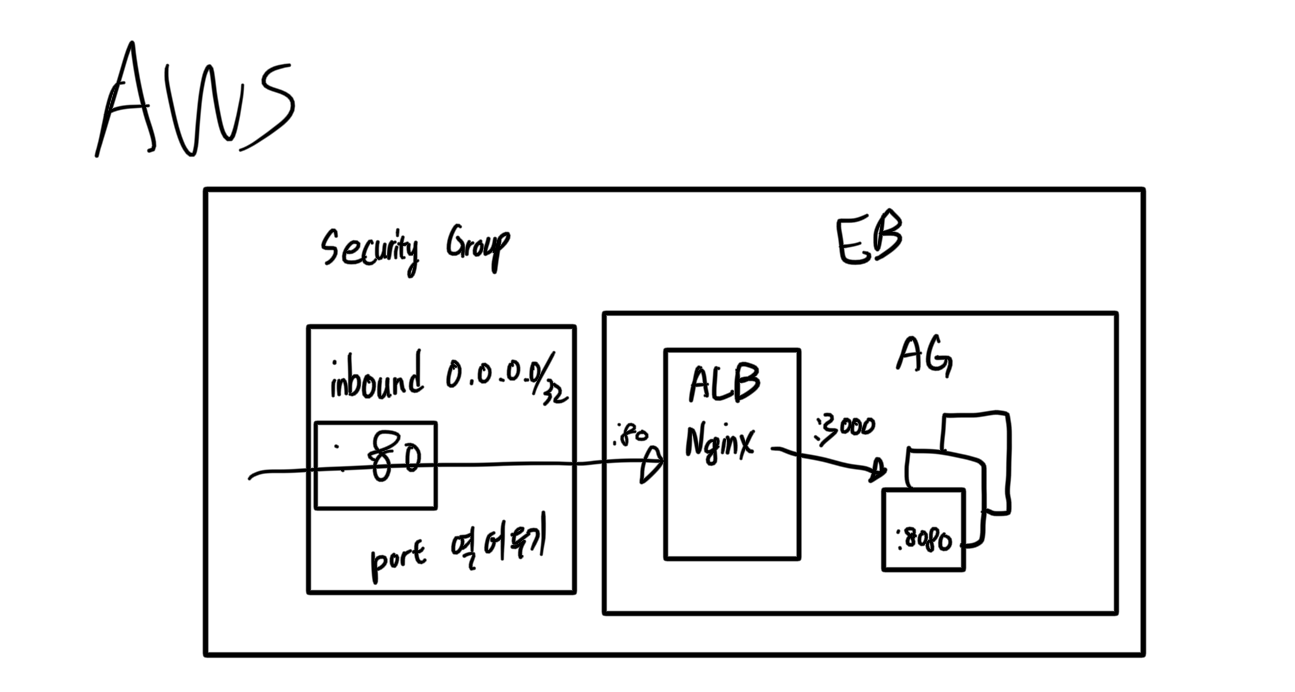 AWS
Security Group
EB
inbound 0.0.0.0/32
:80
port 열어두기
:80
ALB
Nginx
:3000
AG
:8080